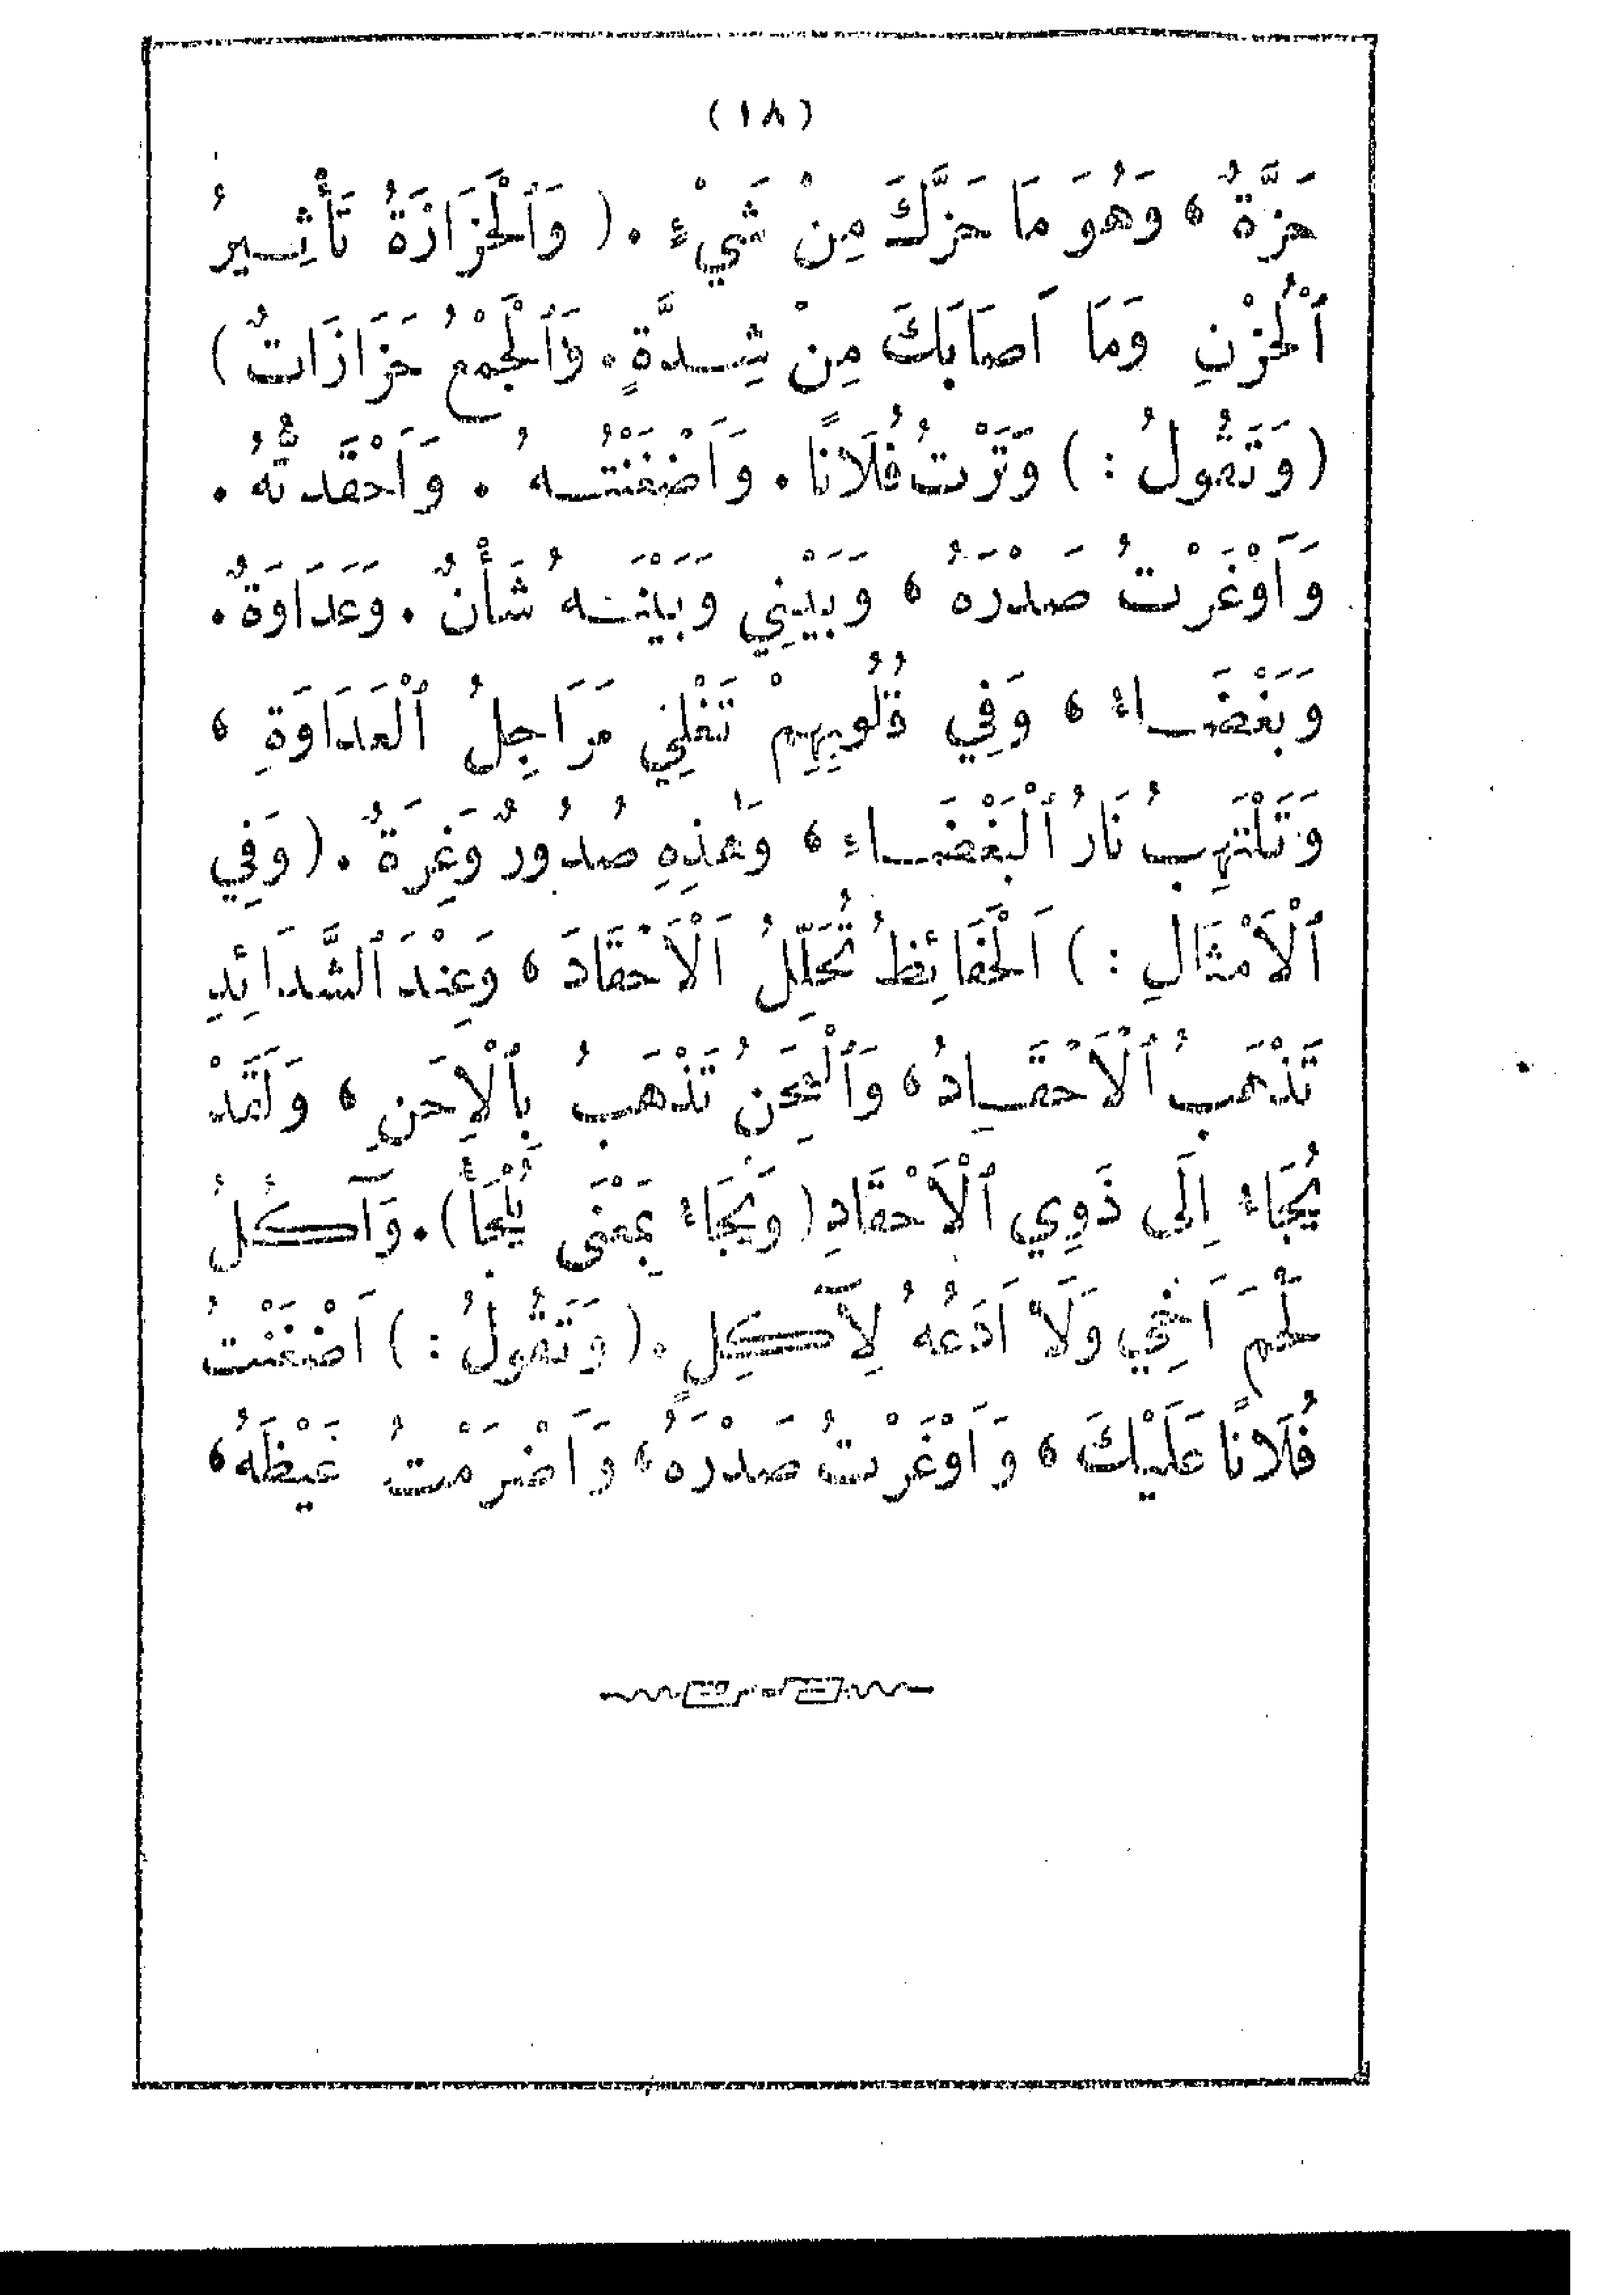 (١٨)
حَزَّةٌ ، وَهُوَ مَا حَزَّكَ مِنْ شَيْءٍ . ( وَٱلْحَزَازَةُ تَأْثِيرُ
ٱلْحُزْنِ وَمَا اَصَابَكَ مِنْ شِدَّةٍ . وَٱلْجَمْعُ حَزَازَاتٌ )
( وَتَقُولُ : ) وَتَرْتُ فُلَانًا . وَاَضْغَنْتُهُ . وَاَحْقَدتُّهُ .
وَاَوْغَرْتُ صَدْرَهُ ، وَبَيْنِي وَبَيْنَهُ شَأْنٌ . وَعَدَاوَةٌ .
وَبَغْضَاءُ ، وَفِي قُلُوبِهِمْ تَغْلِي مَرَاجِلُ ٱلْعَدَاوَةِ ،
وَتَلْتَهِبُ نَارُ ٱلْبَغْضَاءِ ، وَهٰذِهِ صُدُورٌ وَغِرَةٌ . ( وَفِي
ٱلْاَمْثَالِ : ) اَلْحَفَائِظُ تُحَلِّلُ اَلْاَحْقَادَ ، وَعِنْدَ ٱلشَّدَائِدِ
تَذْهَبُ ٱلْاَحْقَادُ ، وَٱلْمِحَنُ تَذْهَبُ بِٱلْاِحَنِ ، وَلَقَدْ
يُجَاءُ اِلَى ذَوِي ٱلْاَحْقَادِ ( وَيُجَاءُ بِمَعْنَى يُلْجَأُ ) . وَآكُلُ
لَحْمَ اَخِي وَلَا اَدَعُهُ لِآكِلٍ . ( وَتَقُولُ : ) اَضْغَنْتُ
فُلَانًا عَلَيْكَ ، وَاَوْغَرْتُ صَدْرَهُ ، وَاَضْرَمْتُ غَيْظَهُ ،